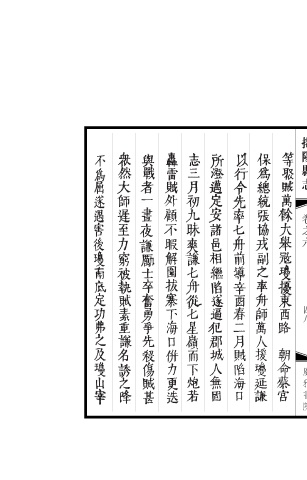 揭陽縣志
卷之六
等聚賊萬餘大舉寇瓊擾東西路　朝命蔡官
保為總統張協戎副之率舟師萬人援瓊延謙
以行令先率七舟前導辛酉春二月賊陷海口
所澄邁定安諸邑相繼陷遂逼犯郡城人無固
志三月初九昧爽謙七舟從七星嶺而下炮若
轟雷賊外顧不暇解圍拔寨下海口併力更迭
與戰者一晝夜謙勵士卒奮勇爭先殺傷賊甚
衆然大師遲至力窮被執賊素重謙名誘之降
不為屈遂遇害後瓊南底定功弗之及瓊山宰